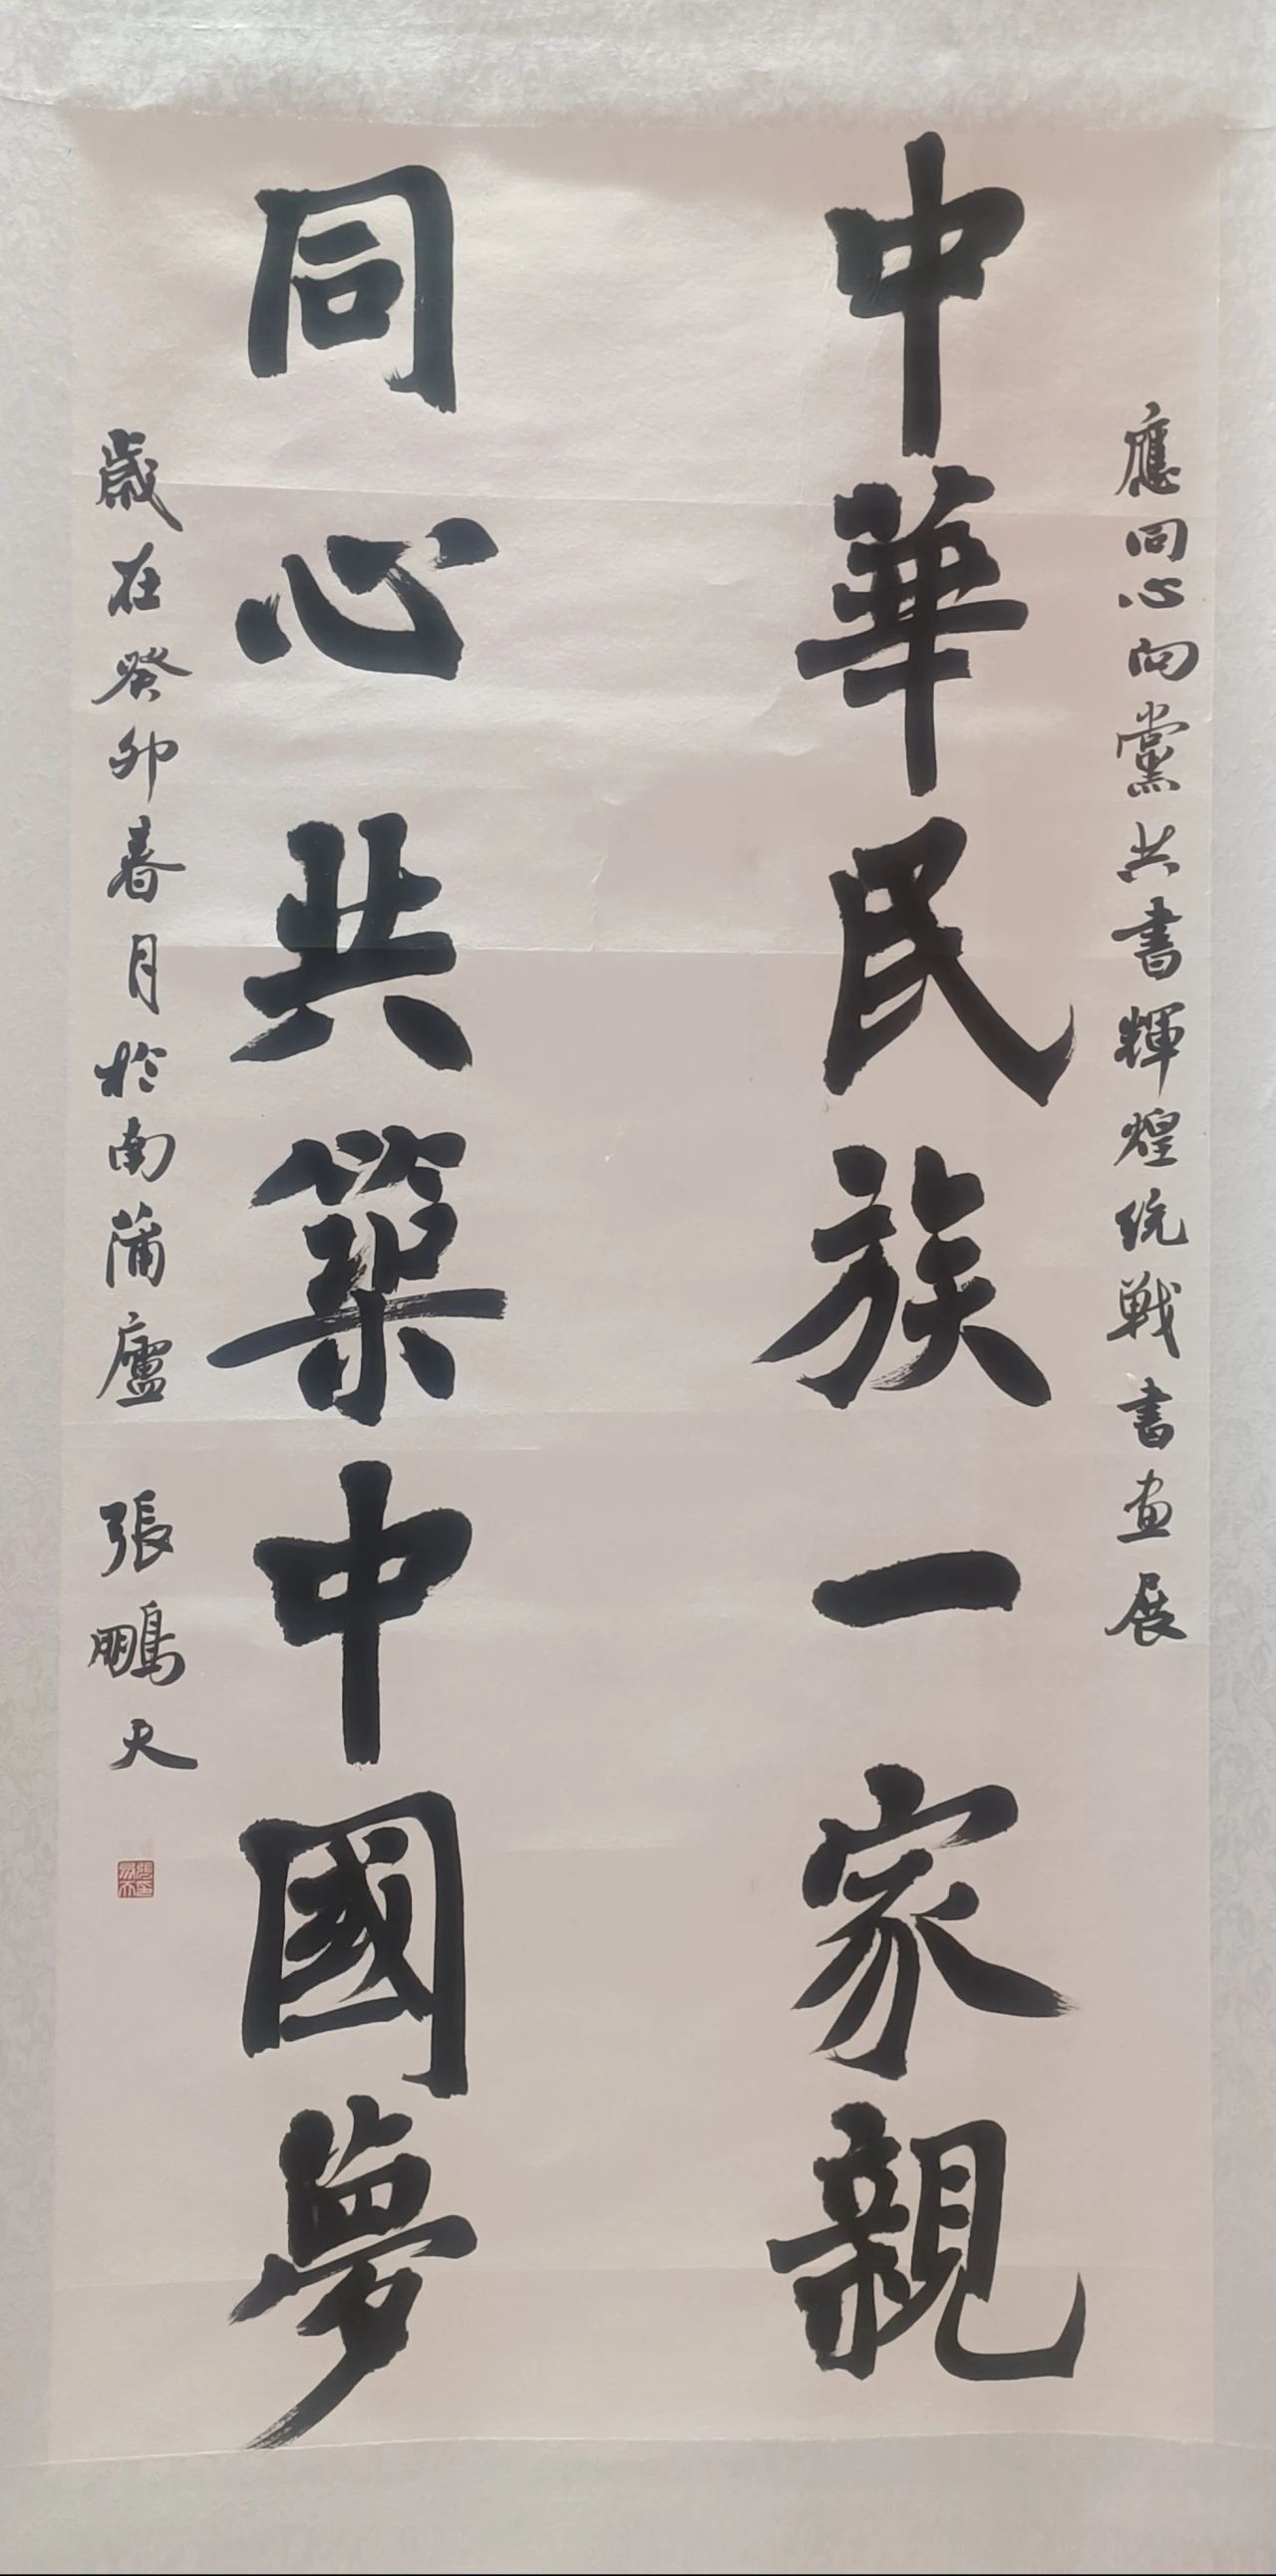 應同心向黨共書輝煌統戰書畫展
中華民族一家親
同心共築中國夢
歲在癸卯春月於南蒲廬 張鵬天